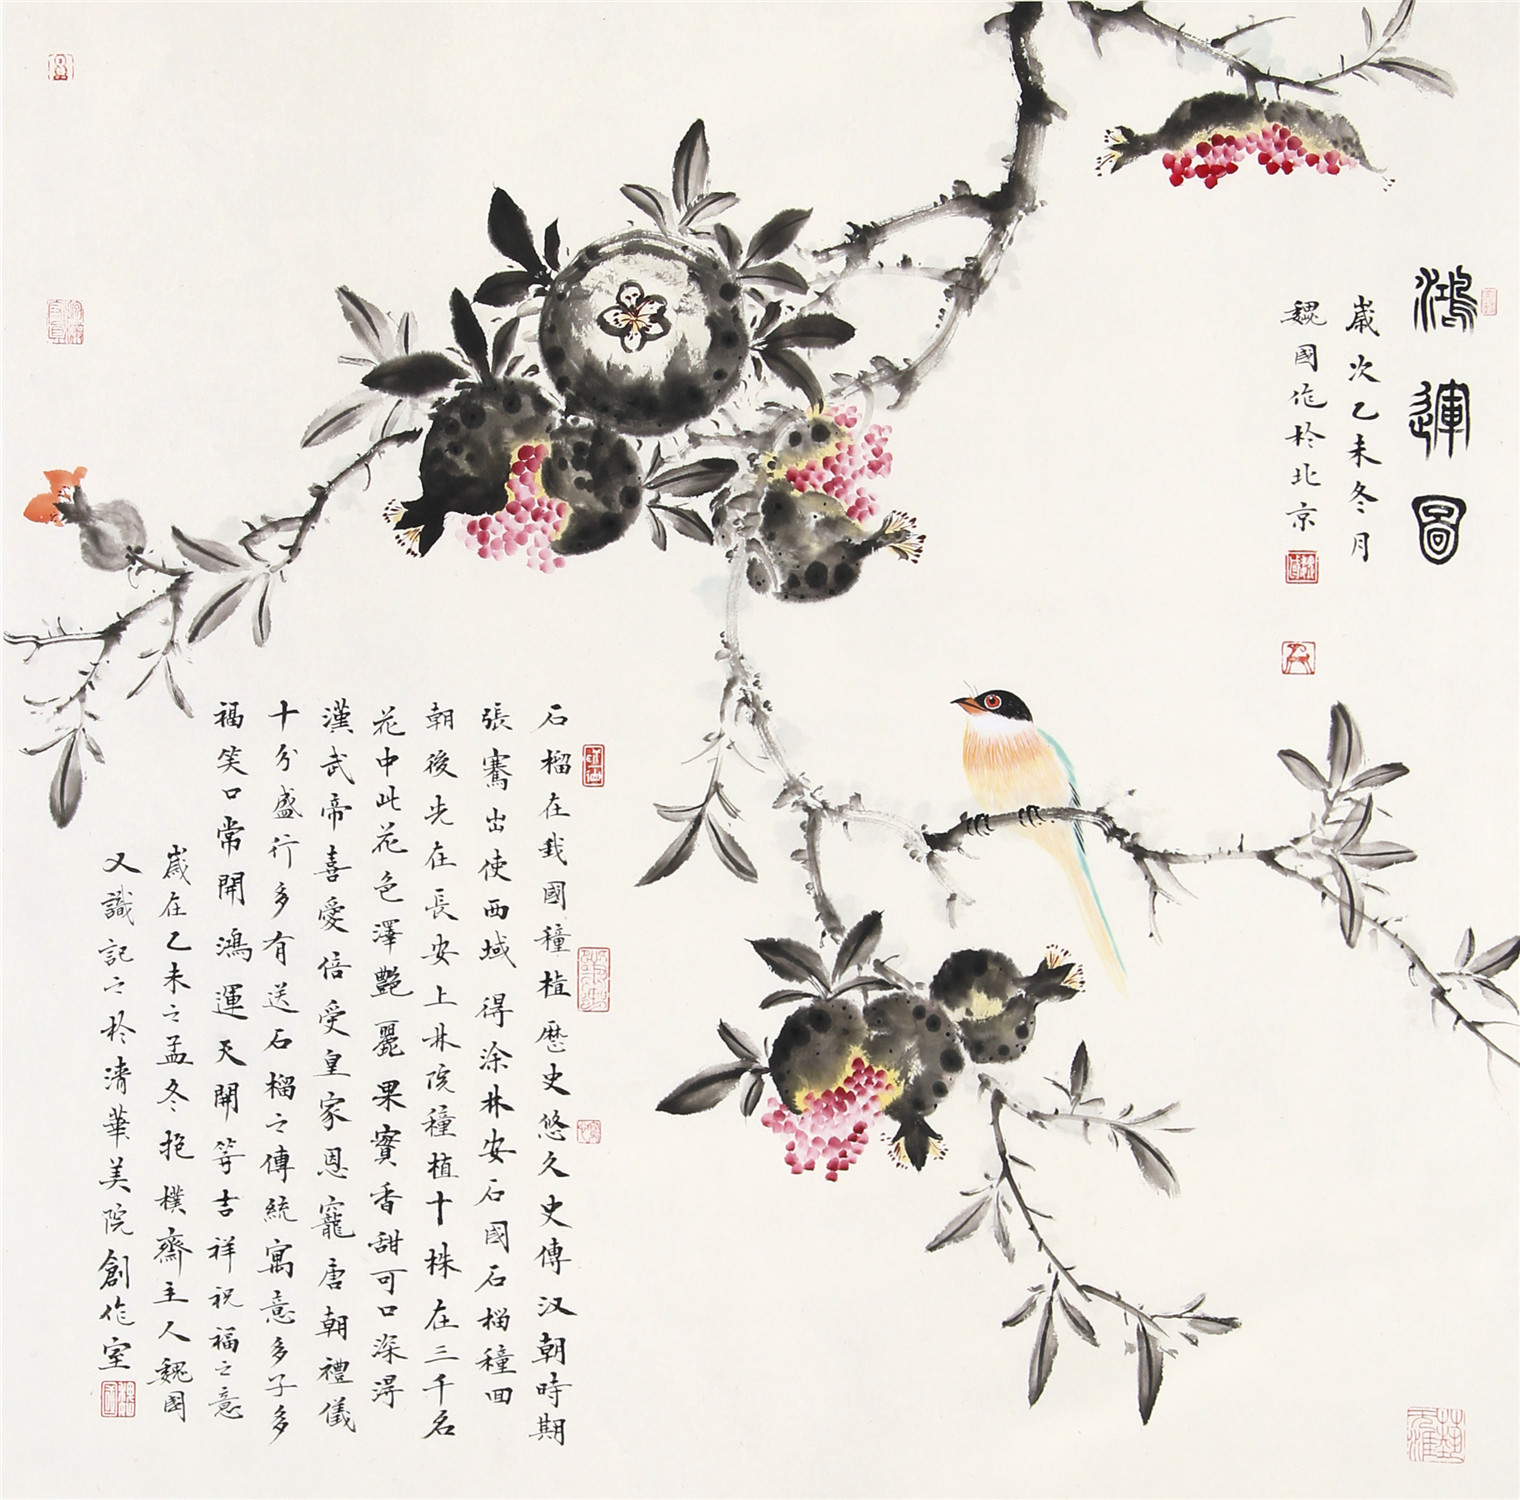 鴻運圖
歲次乙未冬月
魏國作於北京
石榴在我國種植歷史悠久史傳汉朝時期
張騫出使西域得涂林安石國石榴種囬
朝後先在長安上林院種植十株在三千名
花中此花色澤艷麗果實香甜可口深淂
漢武帝喜愛倍受皇家恩寵唐朝禮儀
十分盛行多有送石榴之傳統寓意多子多
福笑口常開鴻運天開等吉祥祝福之意
歲在乙未之孟冬抱樸齋主人魏國
又識記之於清華美院創作室